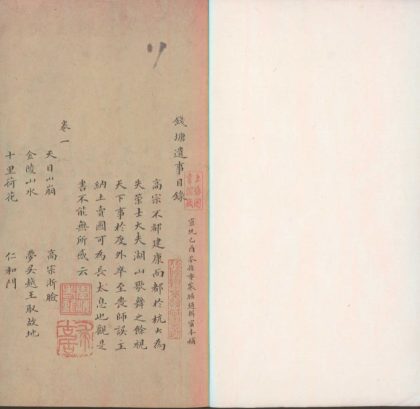 錢塘遺事目錄
高宗不都建康而都於杭大為
失策士大夫湖山歌舞之餘視
天下事於度外卒至喪師誤主
納土賣國可為長太息也觀是
書不能無所感云
卷一
天目山 高宗浙臉
金陵山水 夢吳越王取故地
十里荷花 仁和門